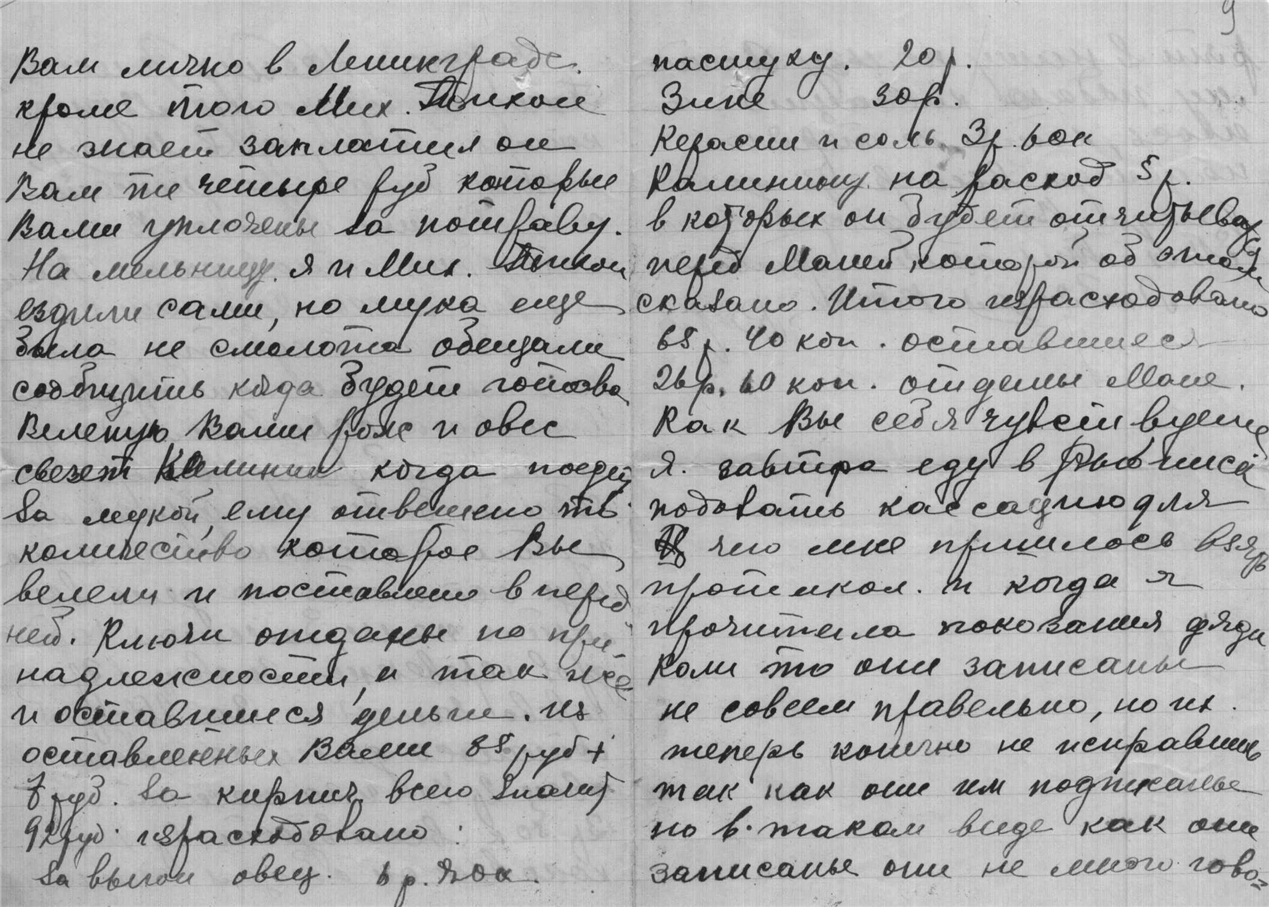 Вам лично в Ленинграде.
кроме того Мих.
не знает заплатил он
Вам ти четыре руб которые
Вами уплочены за потраву.
На мельницу я и Мих.
ездили сами, но мука еще
была не смолота обещали
сообщить когда будет готова
Веленую Вами рож и овес
свезет Калинин когда поедет
за мукой, ему отвешено то
количество которое Вы
велели и поставлено в перед
ней. Ключи отданы по при
надлежности, и так же
и оставшиеся деньги. из
оставленных Вами 85 руб +
7 руб. за кирпич всего значит
92 руб. израсходовано:
за выгон овец. 6 р. 80 к.
9
пастуху. 20 р.
Зине 30 р.
Керасин и соль 3 р. 60 к
Калинину на расход 5 р.
в которых он будет отчитываться
перед Маней, которой об этом
сказано. Итого израсходовано
65 р. 40 коп. оставшиеся
26 р. 60 коп. отданы Мане.
Как Вы себя чувствуете
я завтра еду в Рыбинск
подовать кассацию для
чего мне пришлось взять
протокол. и когда я
прочитала показания дяди
Коли то они записаны
не совсем правельно, но их.
теперь конечно не исправишь
так как они им подписаны
но в таком виде как они
записаны они не много гово=